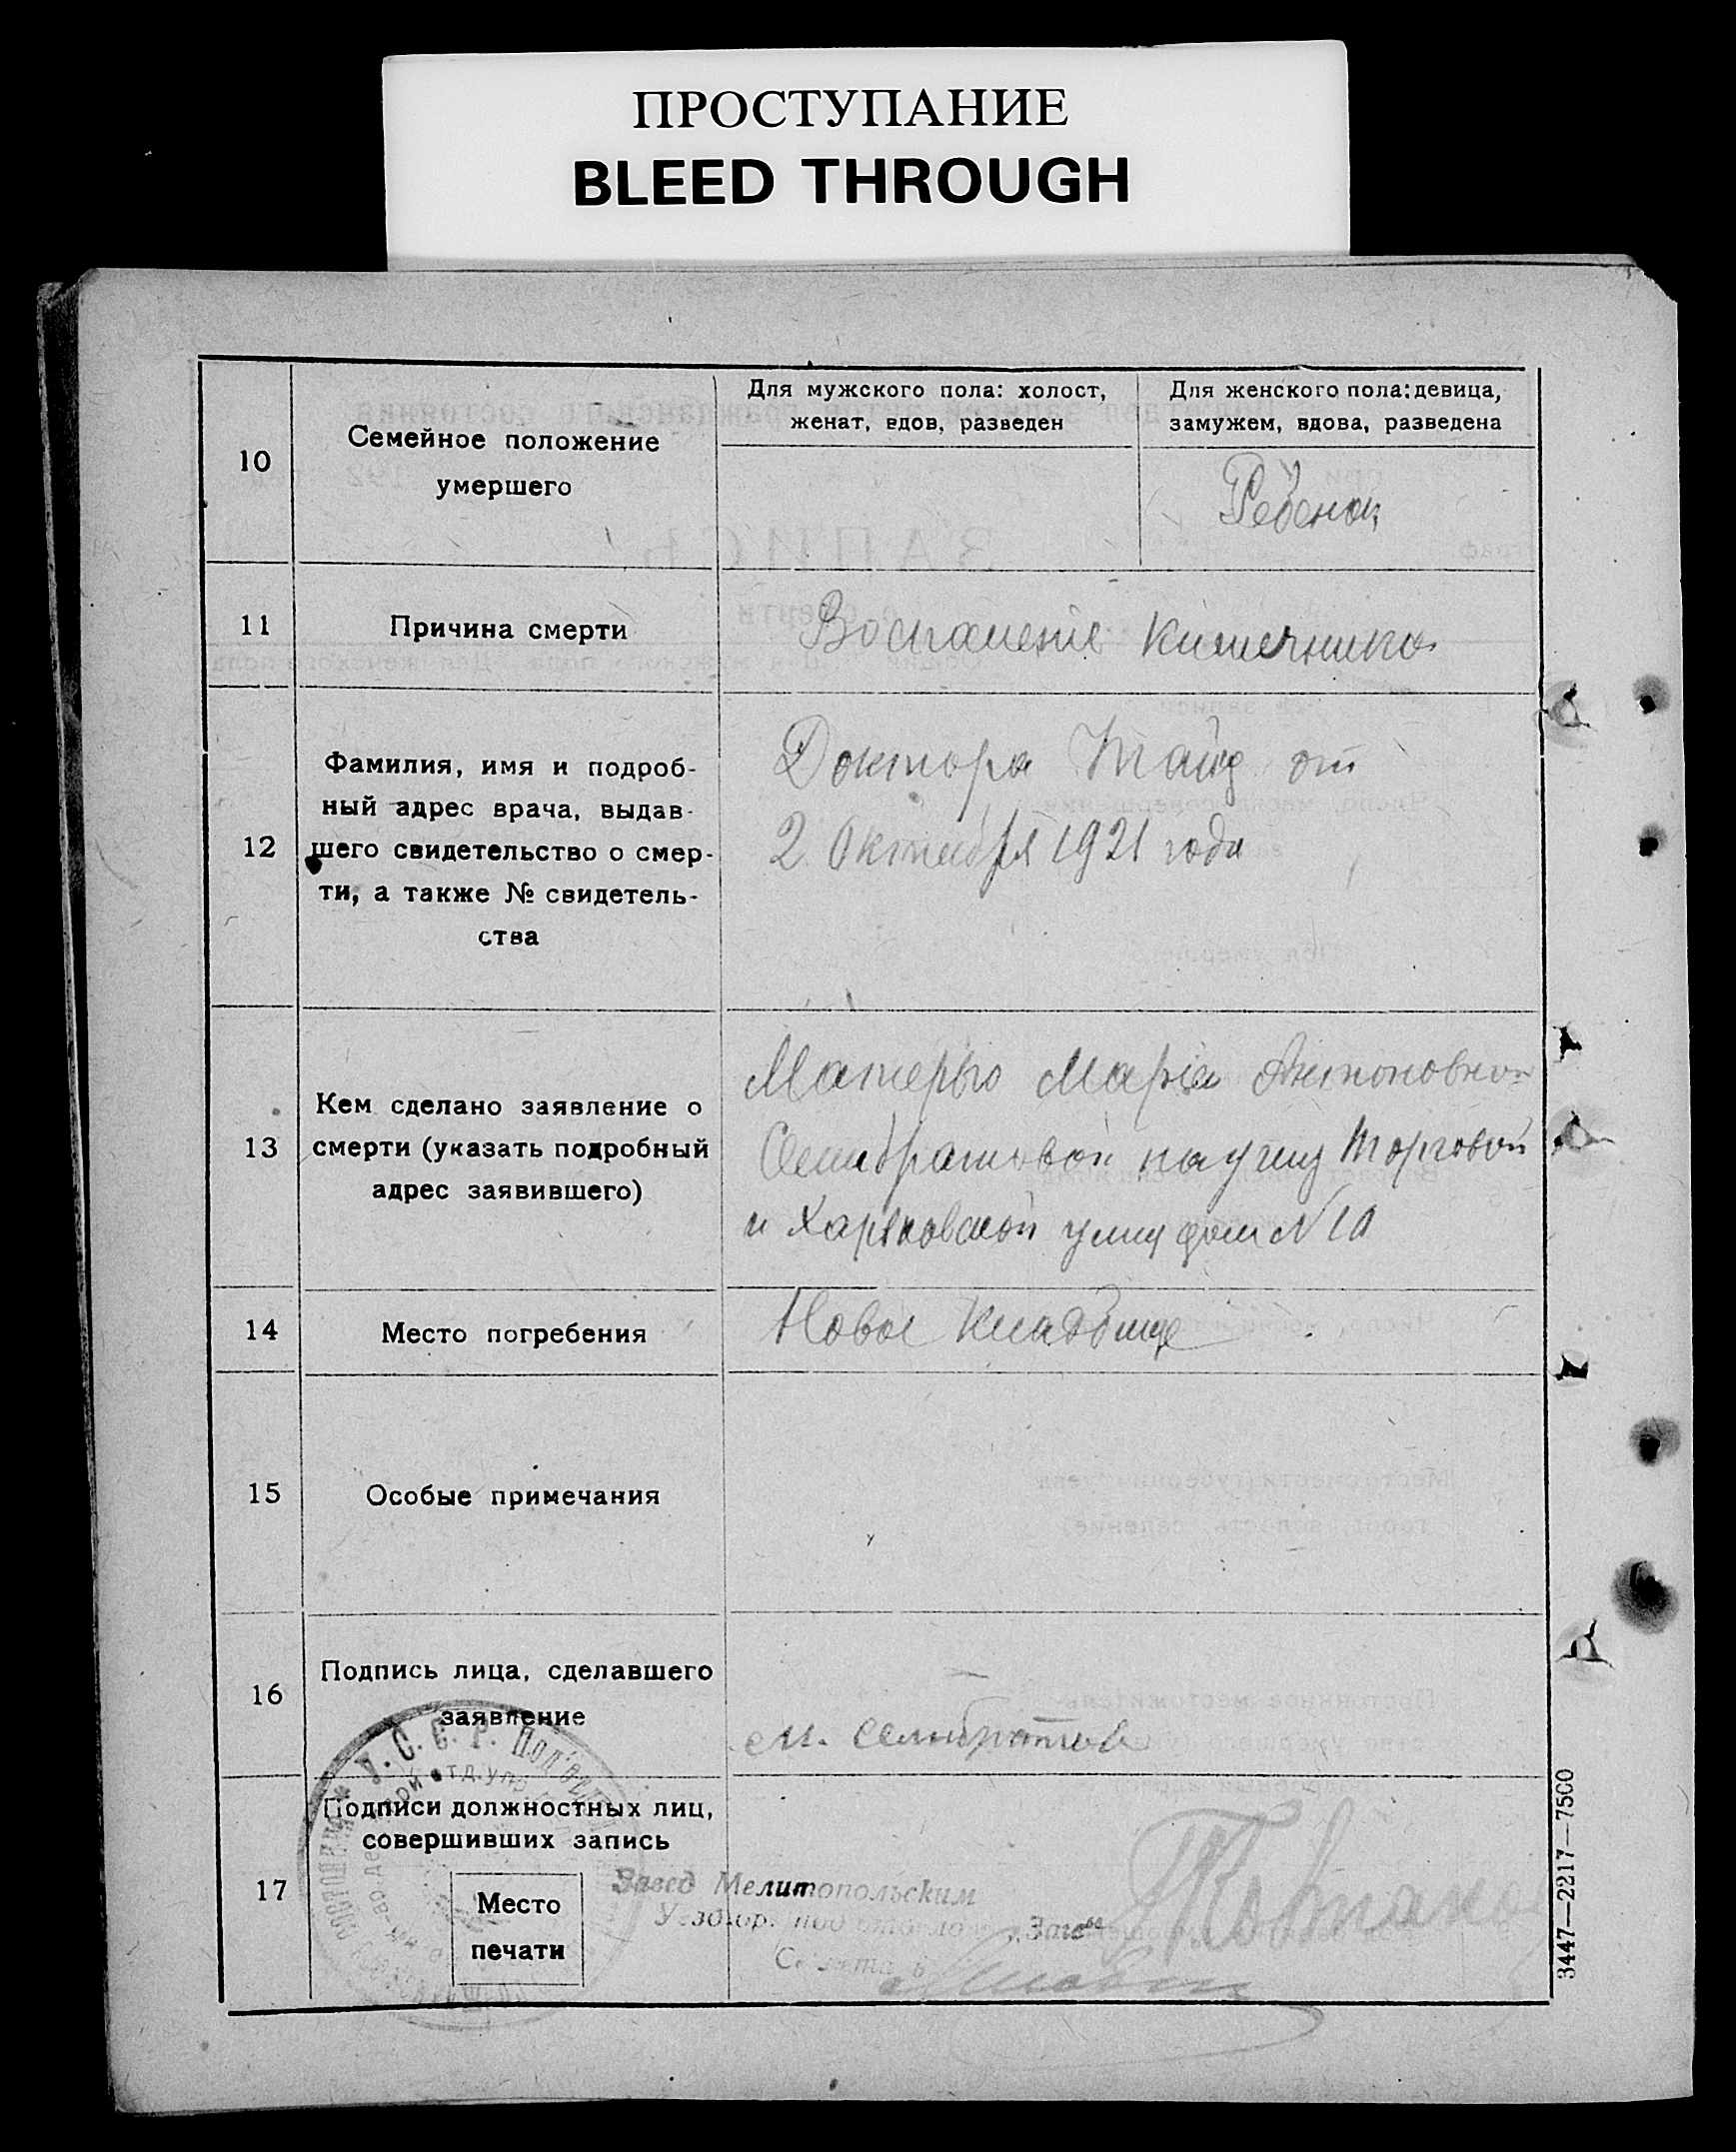 ПРОСТУПАНИЕ
BLEED THROUGH
10
Семейное положение
умершего
Для мужского пола: холост,
женат, вдов, разведен
Для женского пола: девица,
замужем, вдова, разведена
Ребенок
11
Причина смерти
Воспаление кишечника
12
Фамилия, имя и подроб-
ный адрес врача, выдав-
шего свидетельство о смер-
ти, а также № свидетель-
ства
Доктора от
2 Октября 1921 года
13
Кем сделано заявление о
смерти (указать подробный
адрес заявившего)
Матерью Антоновной
на углу Торговой
и Харьковской улиц дом N 10
14
Место погребения
Новое кладбище
15
Особые примечания
16
Подпись лица, сделавшего
заявление
17
Подписи должностных лиц,
совершивших запись
Место
печати
У. С. С. Р.
Завед Мелитопольским
3447—2217—7500